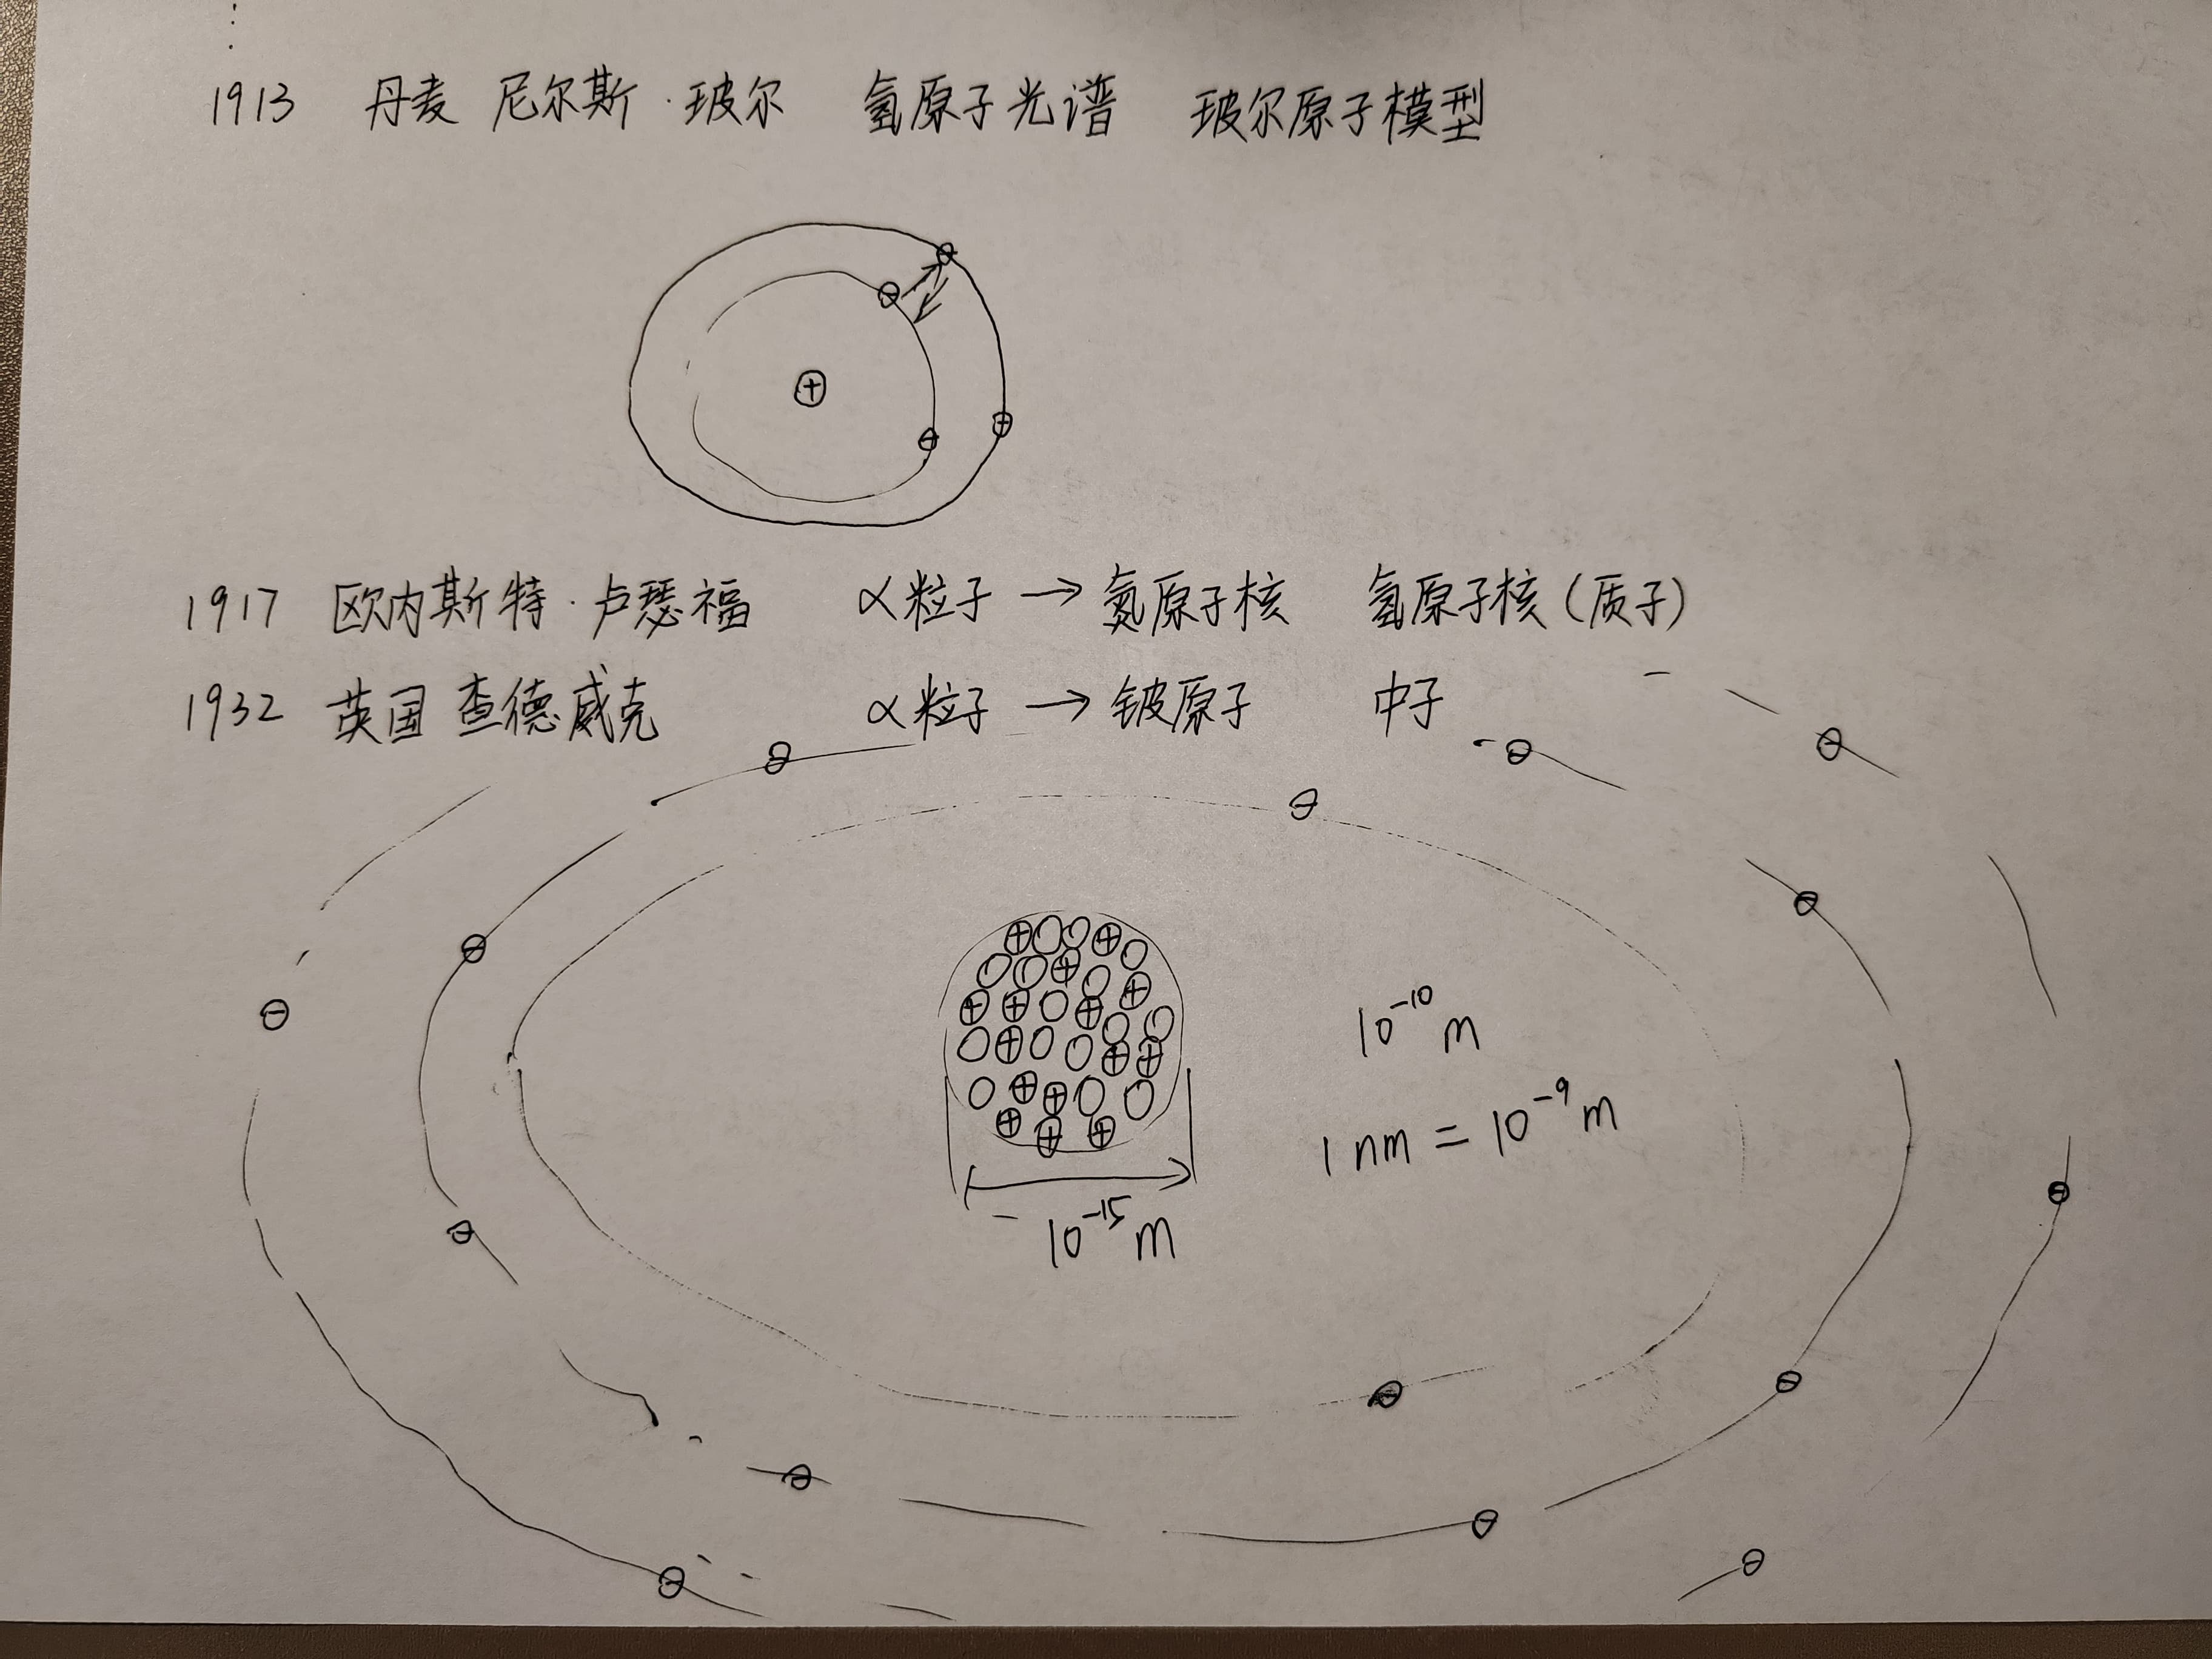 1913 丹麦 尼尔斯·玻尔 氢原子光谱 玻尔原子模型
1917 欧内斯特·卢瑟福 α粒子 → 氮原子核 氢原子核(质子)
1932 英国 查德威克 α粒子 → 铍原子 中子
10⁻¹⁰ m
1 nm = 10⁻⁹ m
10⁻¹⁵ m